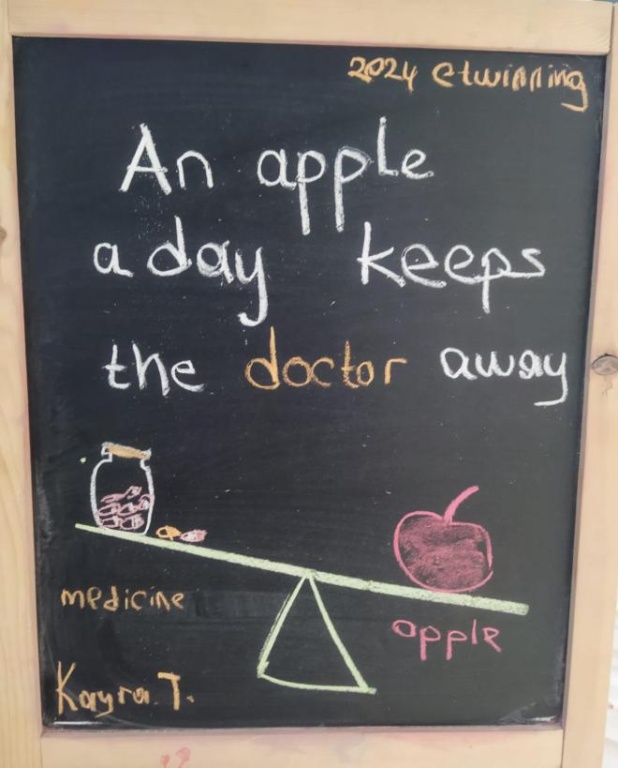 2024 etwinning
An apple
a day keeps
the doctor away
medicine
apple
Kayra.T.